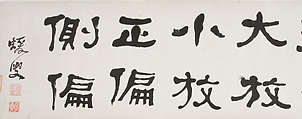 大放
小放
正偏
側偏
蝯叟